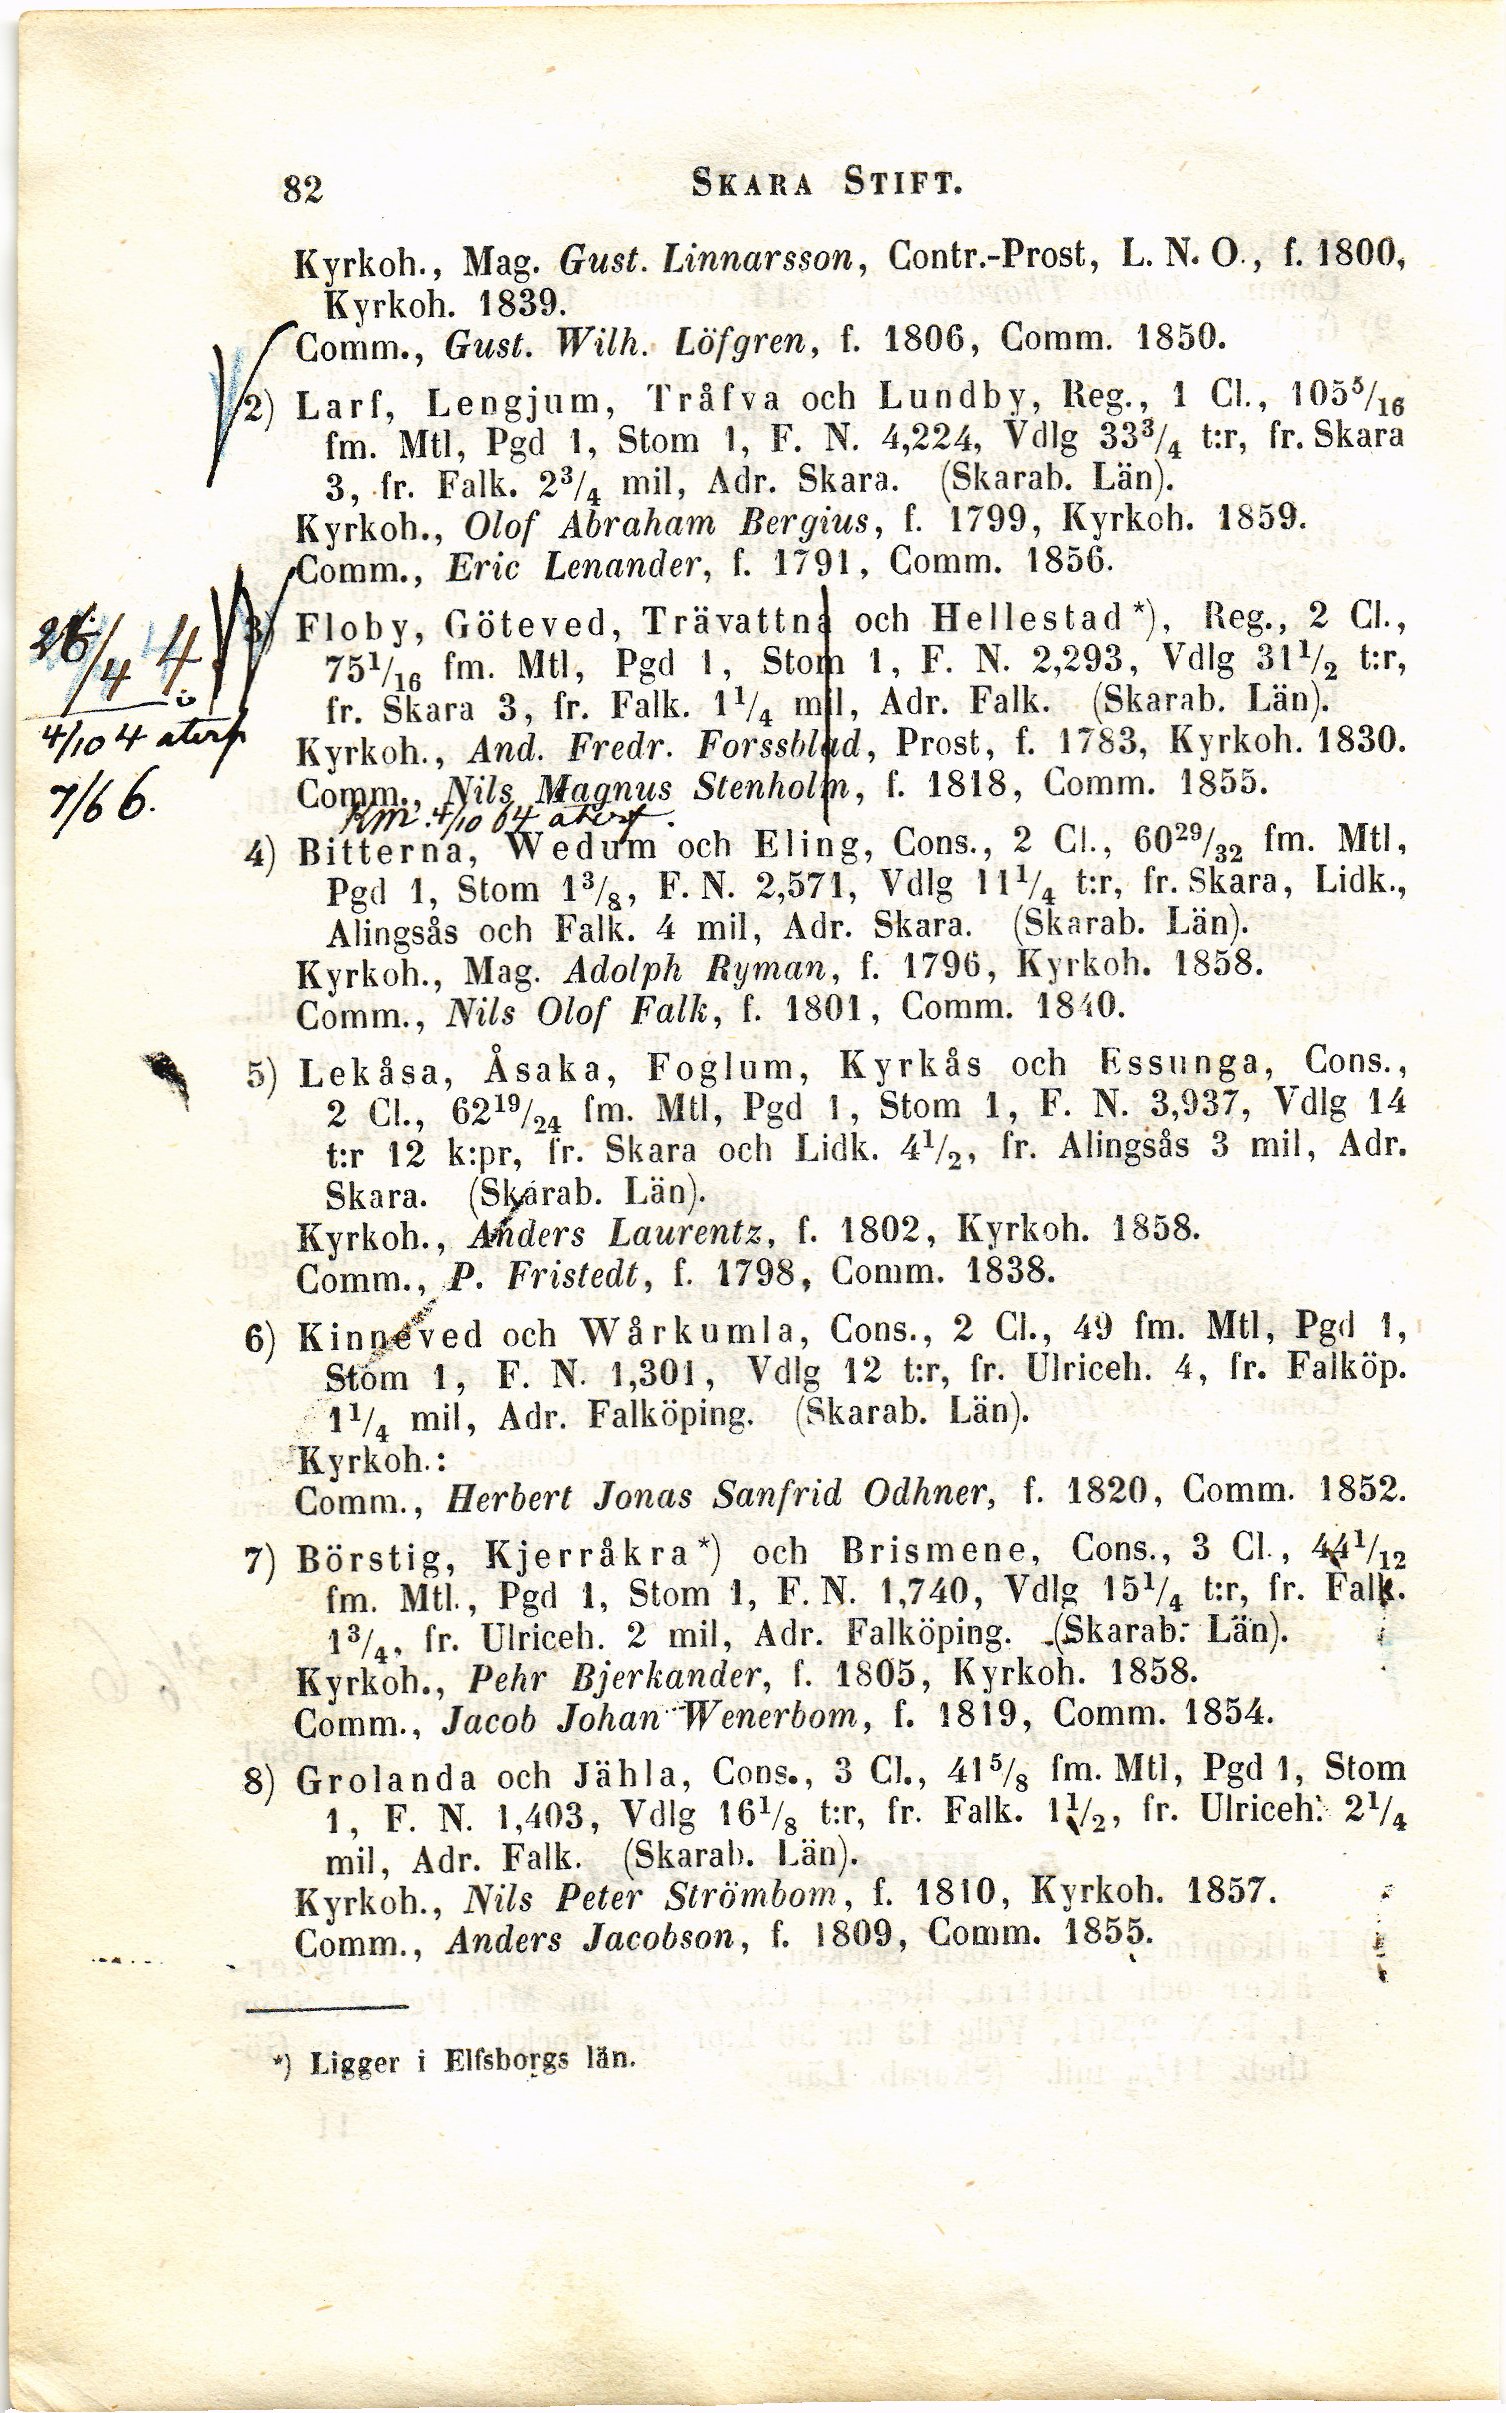 82 SKARA STIFT.
Kyrkoh., Mag. Gust. Linnarsson, Contr.-Prost, L. N. O., f. 1800,
Kyrkoh. 1839.
Comm., Gust. Wilh. Löfgren, f. 1806, Comm. 1850.
2) Larf, Lengjum, Tråfva och Lundby, Reg., 1 Cl., 105⁵/₁₆
fm. Mtl, Pgd 1, Stom 1, F. N. 4,224, Vdlg 33³/₄ t:r, fr. Skara
3, fr. Falk. 2³/₄ mil, Adr. Skara. (Skarab. Län).
Kyrkoh., Olof Abraham Bergius, f. 1799, Kyrkoh. 1859.
Comm., Eric Lenander, f. 1791, Comm. 1856.
3) Floby, Göteved, Trävattna och Hellestad*), Reg., 2 Cl.,
75¹/₁₆ fm. Mtl, Pgd 1, Stom 1, F. N. 2,293, Vdlg 31¹/₂ t:r,
fr. Skara 3, fr. Falk. 1¹/₄ mil, Adr. Falk. (Skarab. Län).
Kyrkoh., And. Fredr. Forssblad, Prost, f. 1783, Kyrkoh. 1830.
Comm., Nils Magnus Stenholm, f. 1818, Comm. 1855.
26/4 4.
4/10 4 aterf
7/6 6.
Rm. 4/10 64 aterf.
4) Bitterna, Wedum och Eling, Cons., 2 Cl., 60²⁹/₃₂ fm. Mtl,
Pgd 1, Stom 1³/₈, F. N. 2,571, Vdlg 11¹/₄ t:r, fr. Skara, Lidk.,
Alingsås och Falk. 4 mil, Adr. Skara. (Skarab. Län).
Kyrkoh., Mag. Adolph Ryman, f. 1796, Kyrkoh. 1858.
Comm., Nils Olof Falk, f. 1801, Comm. 1840.
5) Lekåsa, Åsaka, Foglum, Kyrkås och Essunga, Cons.,
2 Cl., 62¹⁹/₂₄ fm. Mtl, Pgd 1, Stom 1, F. N. 3,937, Vdlg 14
t:r 12 k:pr, fr. Skara och Lidk. 4¹/₂, fr. Alingsås 3 mil, Adr.
Skara. (Skarab. Län).
Kyrkoh., Anders Laurentz, f. 1802, Kyrkoh. 1858.
Comm., P. Fristedt, f. 1798, Comm. 1838.
6) Kinneved och Wårkumla, Cons., 2 Cl., 49 fm. Mtl, Pgd 1,
Stom 1, F. N. 1,301, Vdlg 12 t:r, fr. Ulriceh. 4, fr. Falköp.
1¹/₄ mil, Adr. Falköping. (Skarab. Län).
Kyrkoh.:
Comm., Herbert Jonas Sanfrid Odhner, f. 1820, Comm. 1852.
7) Börstig, Kjerråkra*) och Brismene, Cons., 3 Cl., 44¹/₁₂
fm. Mtl., Pgd 1, Stom 1, F. N. 1,740, Vdlg 15¹/₄ t:r, fr. Falk.
1³/₄, fr. Ulriceh. 2 mil, Adr. Falköping. (Skarab. Län).
Kyrkoh., Pehr Bjerkander, f. 1805, Kyrkoh. 1858.
Comm., Jacob Johan Wenerbom, f. 1819, Comm. 1854.
8) Grolanda och Jähla, Cons., 3 Cl., 41⁵/₈ fm. Mtl, Pgd 1, Stom
1, F. N. 1,403, Vdlg 16¹/₈ t:r, fr. Falk. 1¹/₂, fr. Ulriceh. 2¹/₄
mil, Adr. Falk. (Skarab. Län).
Kyrkoh., Nils Peter Strömbom, f. 1810, Kyrkoh. 1857.
Comm., Anders Jacobson, f. 1809, Comm. 1855.
*) Ligger i Elfsborgs län.